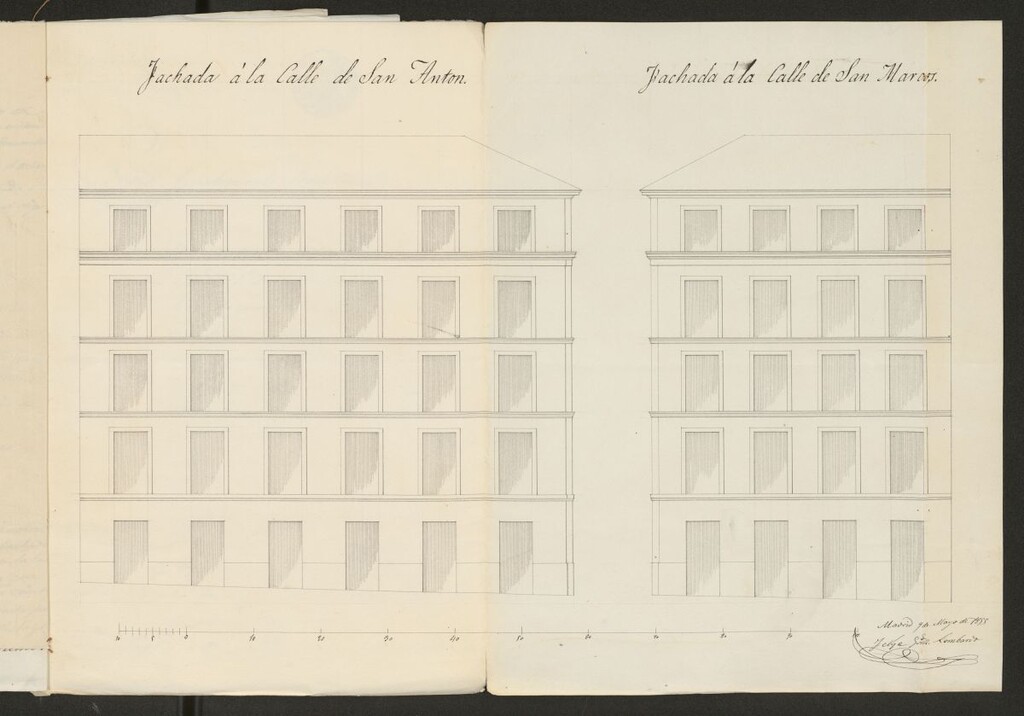 Fachada á la Calle de San Anton.
Fachada á la Calle de San Marcos.
10 5 0 10 20 30 40 50 60 70 80 90
Madrid 9 de Mayo de 1855
Lombardo